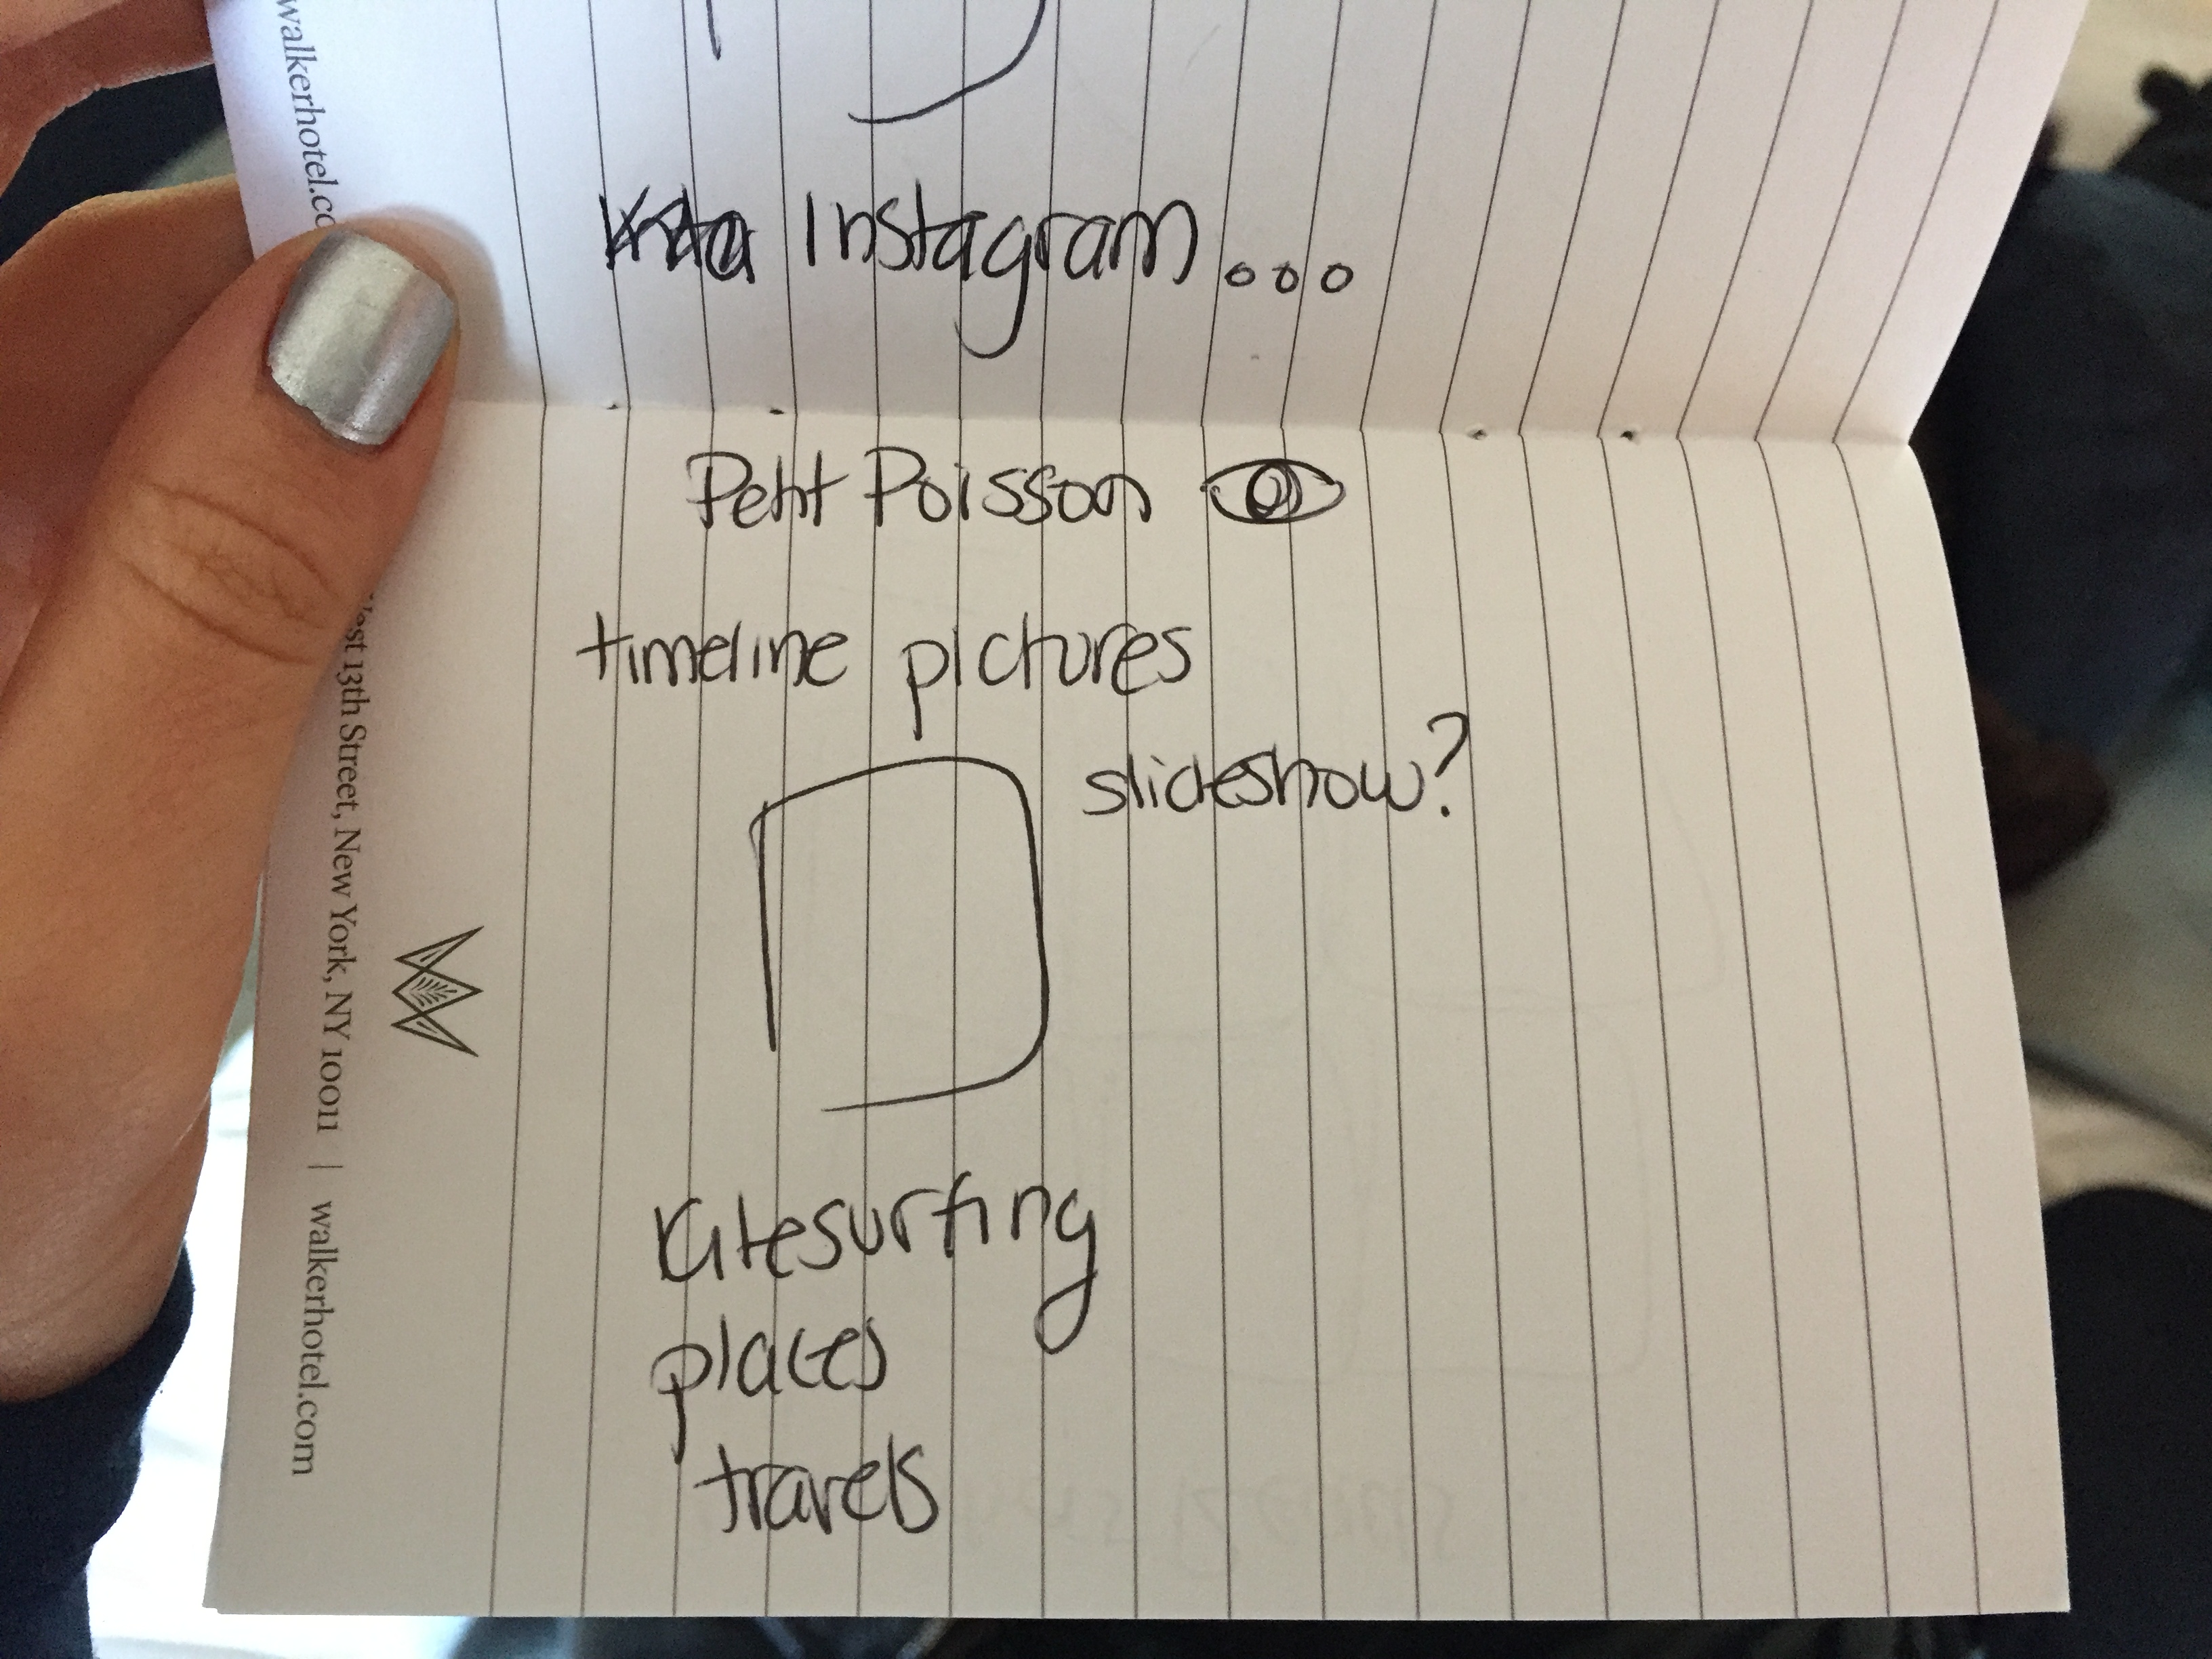 walkerhotel.co
Instagram...
Petit Poisson
timeline pictures
slideshow?
Kitesurfing
places
travels
West 13th Street, New York, NY 10011 | walkerhotel.com